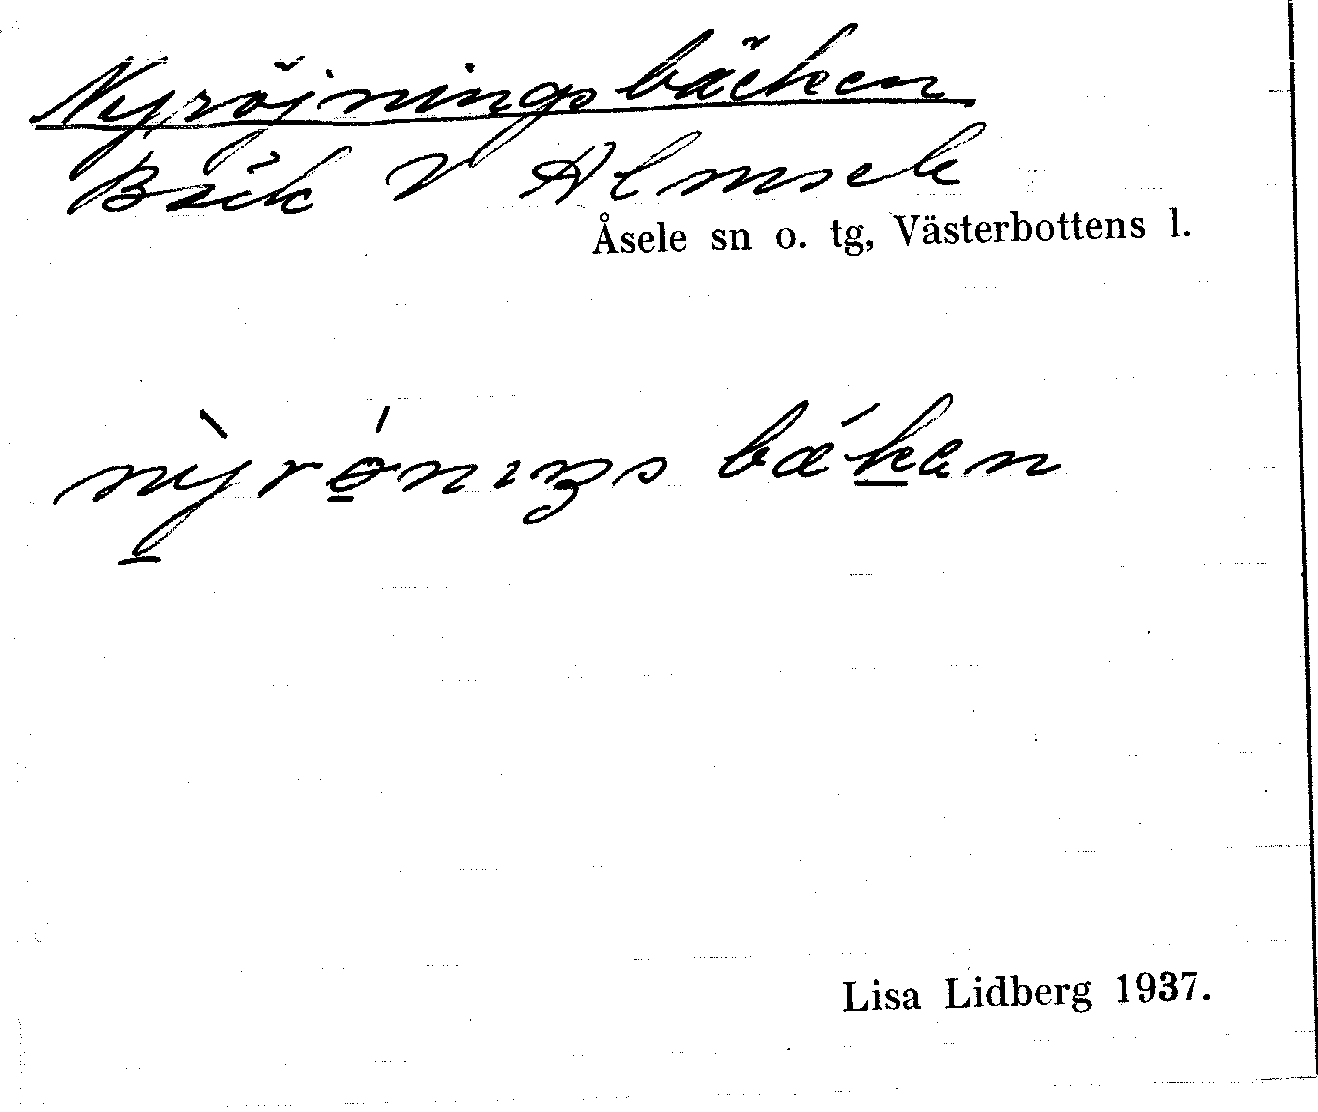 Nyröjningsbäcken
Bäck V Almsele
Åsele sn o. tg, Västerbottens l.
nỳrǿnıŋs bákan
Lisa Lidberg 1937.